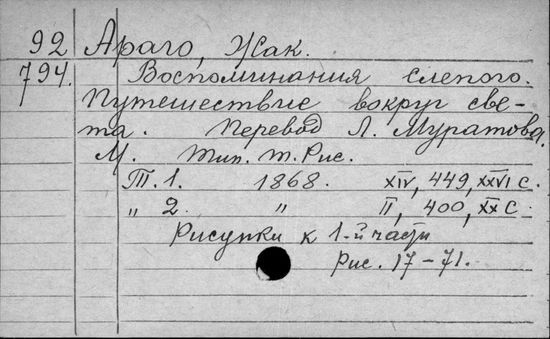 92 Араго, Жак.
794. Воспоминания слепого.
Путешествие вокруг све-
та. Перевод Л. Муратова.
М. Тип. т. Рис.
Т. 1. 1868. XIV, 449, XXVI с.
„ 2. „ II, 400, XX с.
Рисунки к 1-й части
Рис. 17-71.